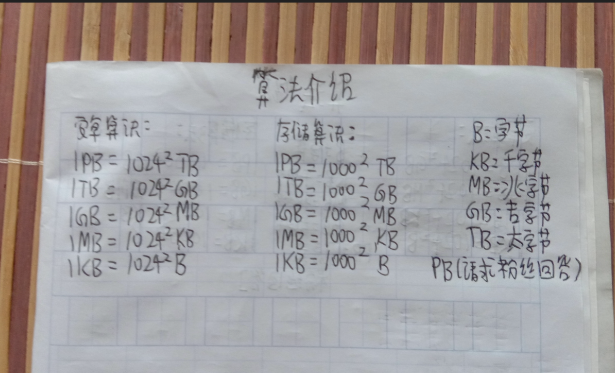 算法介绍
算识:
1PB=1024²TB
1TB=1024²GB
1GB=1024²MB
1MB=1024²KB
1KB=1024²B
存储算识:
1PB=1000² TB
1TB=1000² GB
1GB=1000² MB
1MB=1000² KB
1KB=1000² B
B=字节
KB=千字节
MB=兆字节
GB=吉字节
TB=太字节
PB(请求粉丝回答)